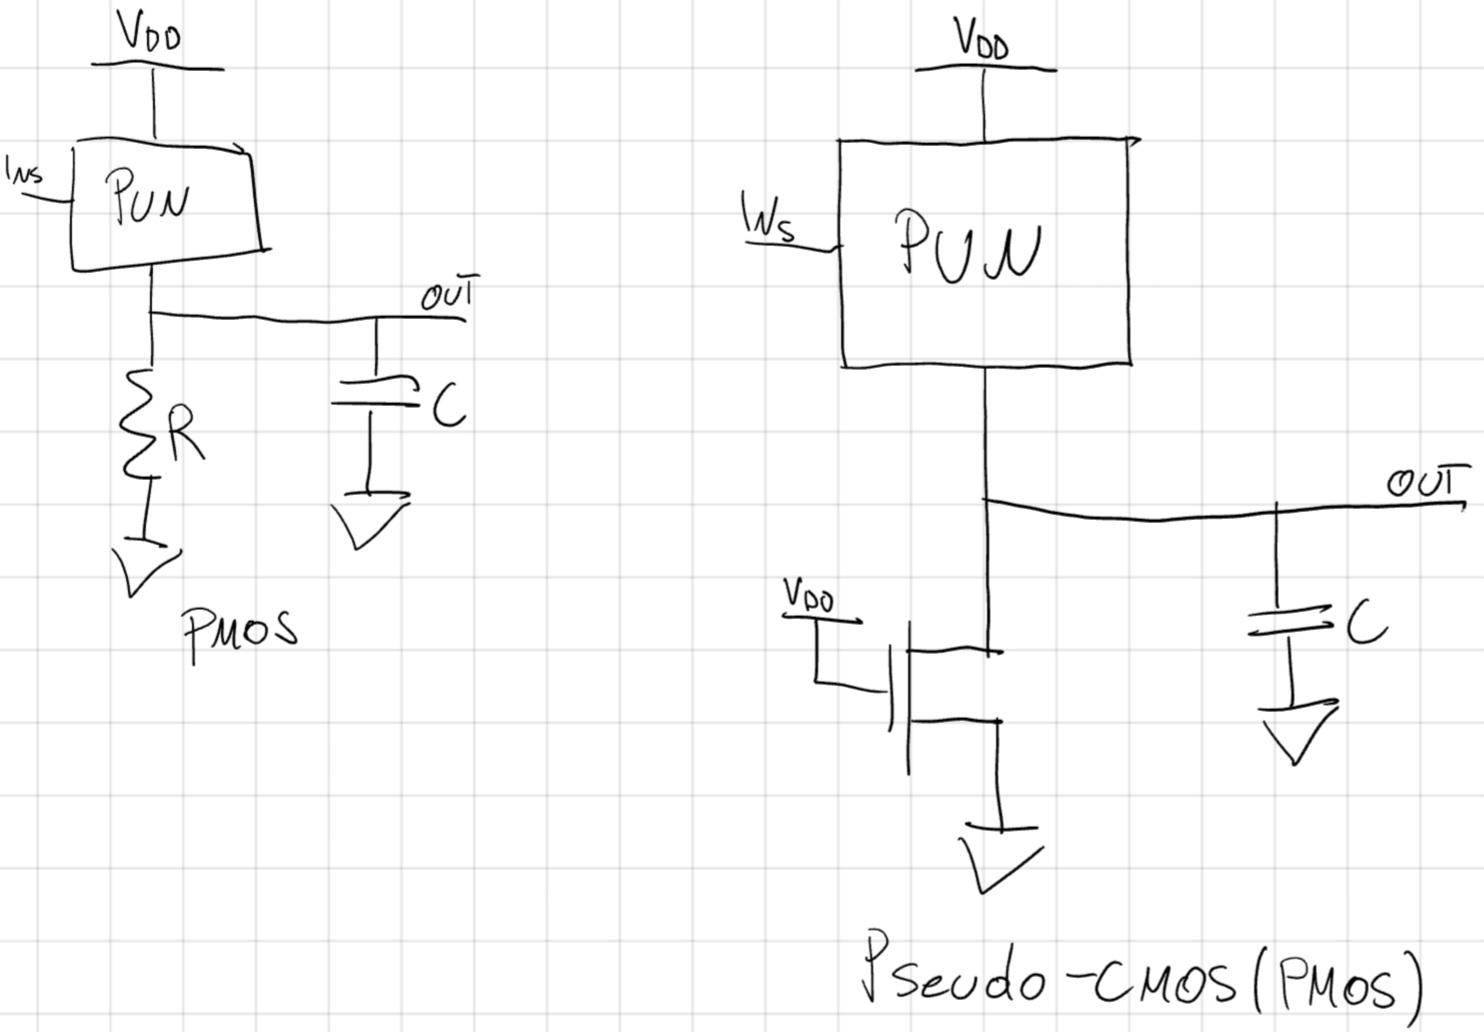 VDD
INS
PUN
OUT
R
C
PMOS
VDD
INS
PUN
OUT
VDD
C
Pseudo-CMOS (PMOS)